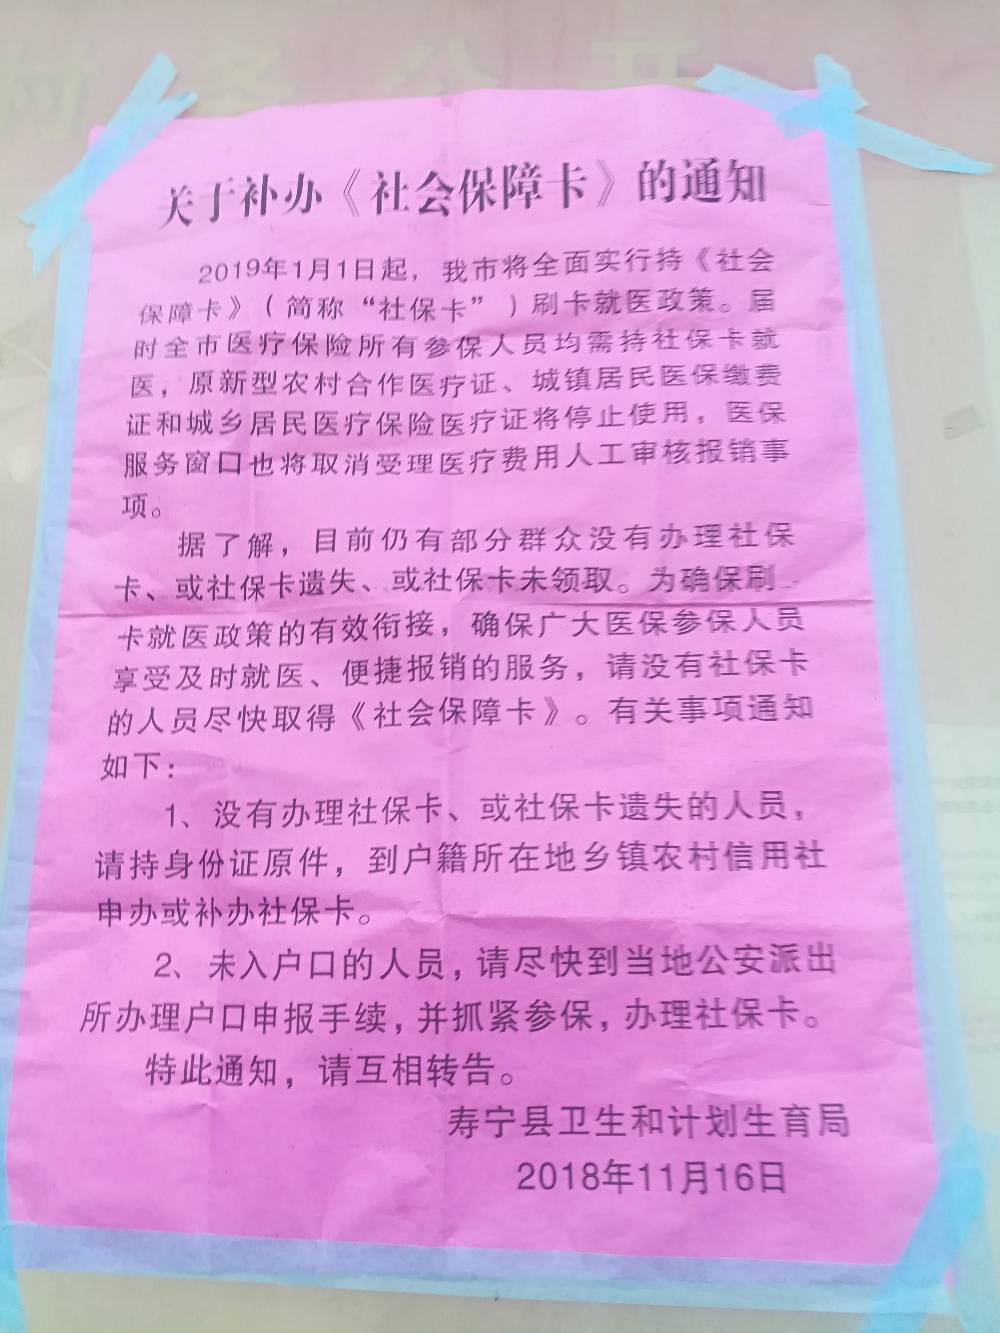 关于补办《社会保障卡》的通知
2019年1月1日起，我市将全面实行持《社会
保障卡》（简称“社保卡”）刷卡就医政策。届
时全市医疗保险所有参保人员均需持社保卡就
医，原新型农村合作医疗证、城镇居民医保缴费
证和城乡居民医疗保险医疗证将停止使用，医保
服务窗口也将取消受理医疗费用人工审核报销事
项。
据了解，目前仍有部分群众没有办理社保
卡、或社保卡遗失、或社保卡未领取。为确保刷
卡就医政策的有效衔接，确保广大医保参保人员
享受及时就医、便捷报销的服务，请没有社保卡
的人员尽快取得《社会保障卡》。有关事项通知
如下：
1、没有办理社保卡、或社保卡遗失的人员，
请持身份证原件，到户籍所在地乡镇农村信用社
申办或补办社保卡。
2、未入户口的人员，请尽快到当地公安派出
所办理户口申报手续，并抓紧参保，办理社保卡。
特此通知，请互相转告。
寿宁县卫生和计划生育局
2018年11月16日